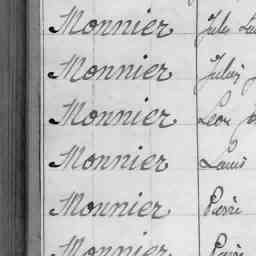 Monnier Jules
Monnier Jules
Monnier Léon
Monnier Louis
Monnier Pierre
Monnier Pierre